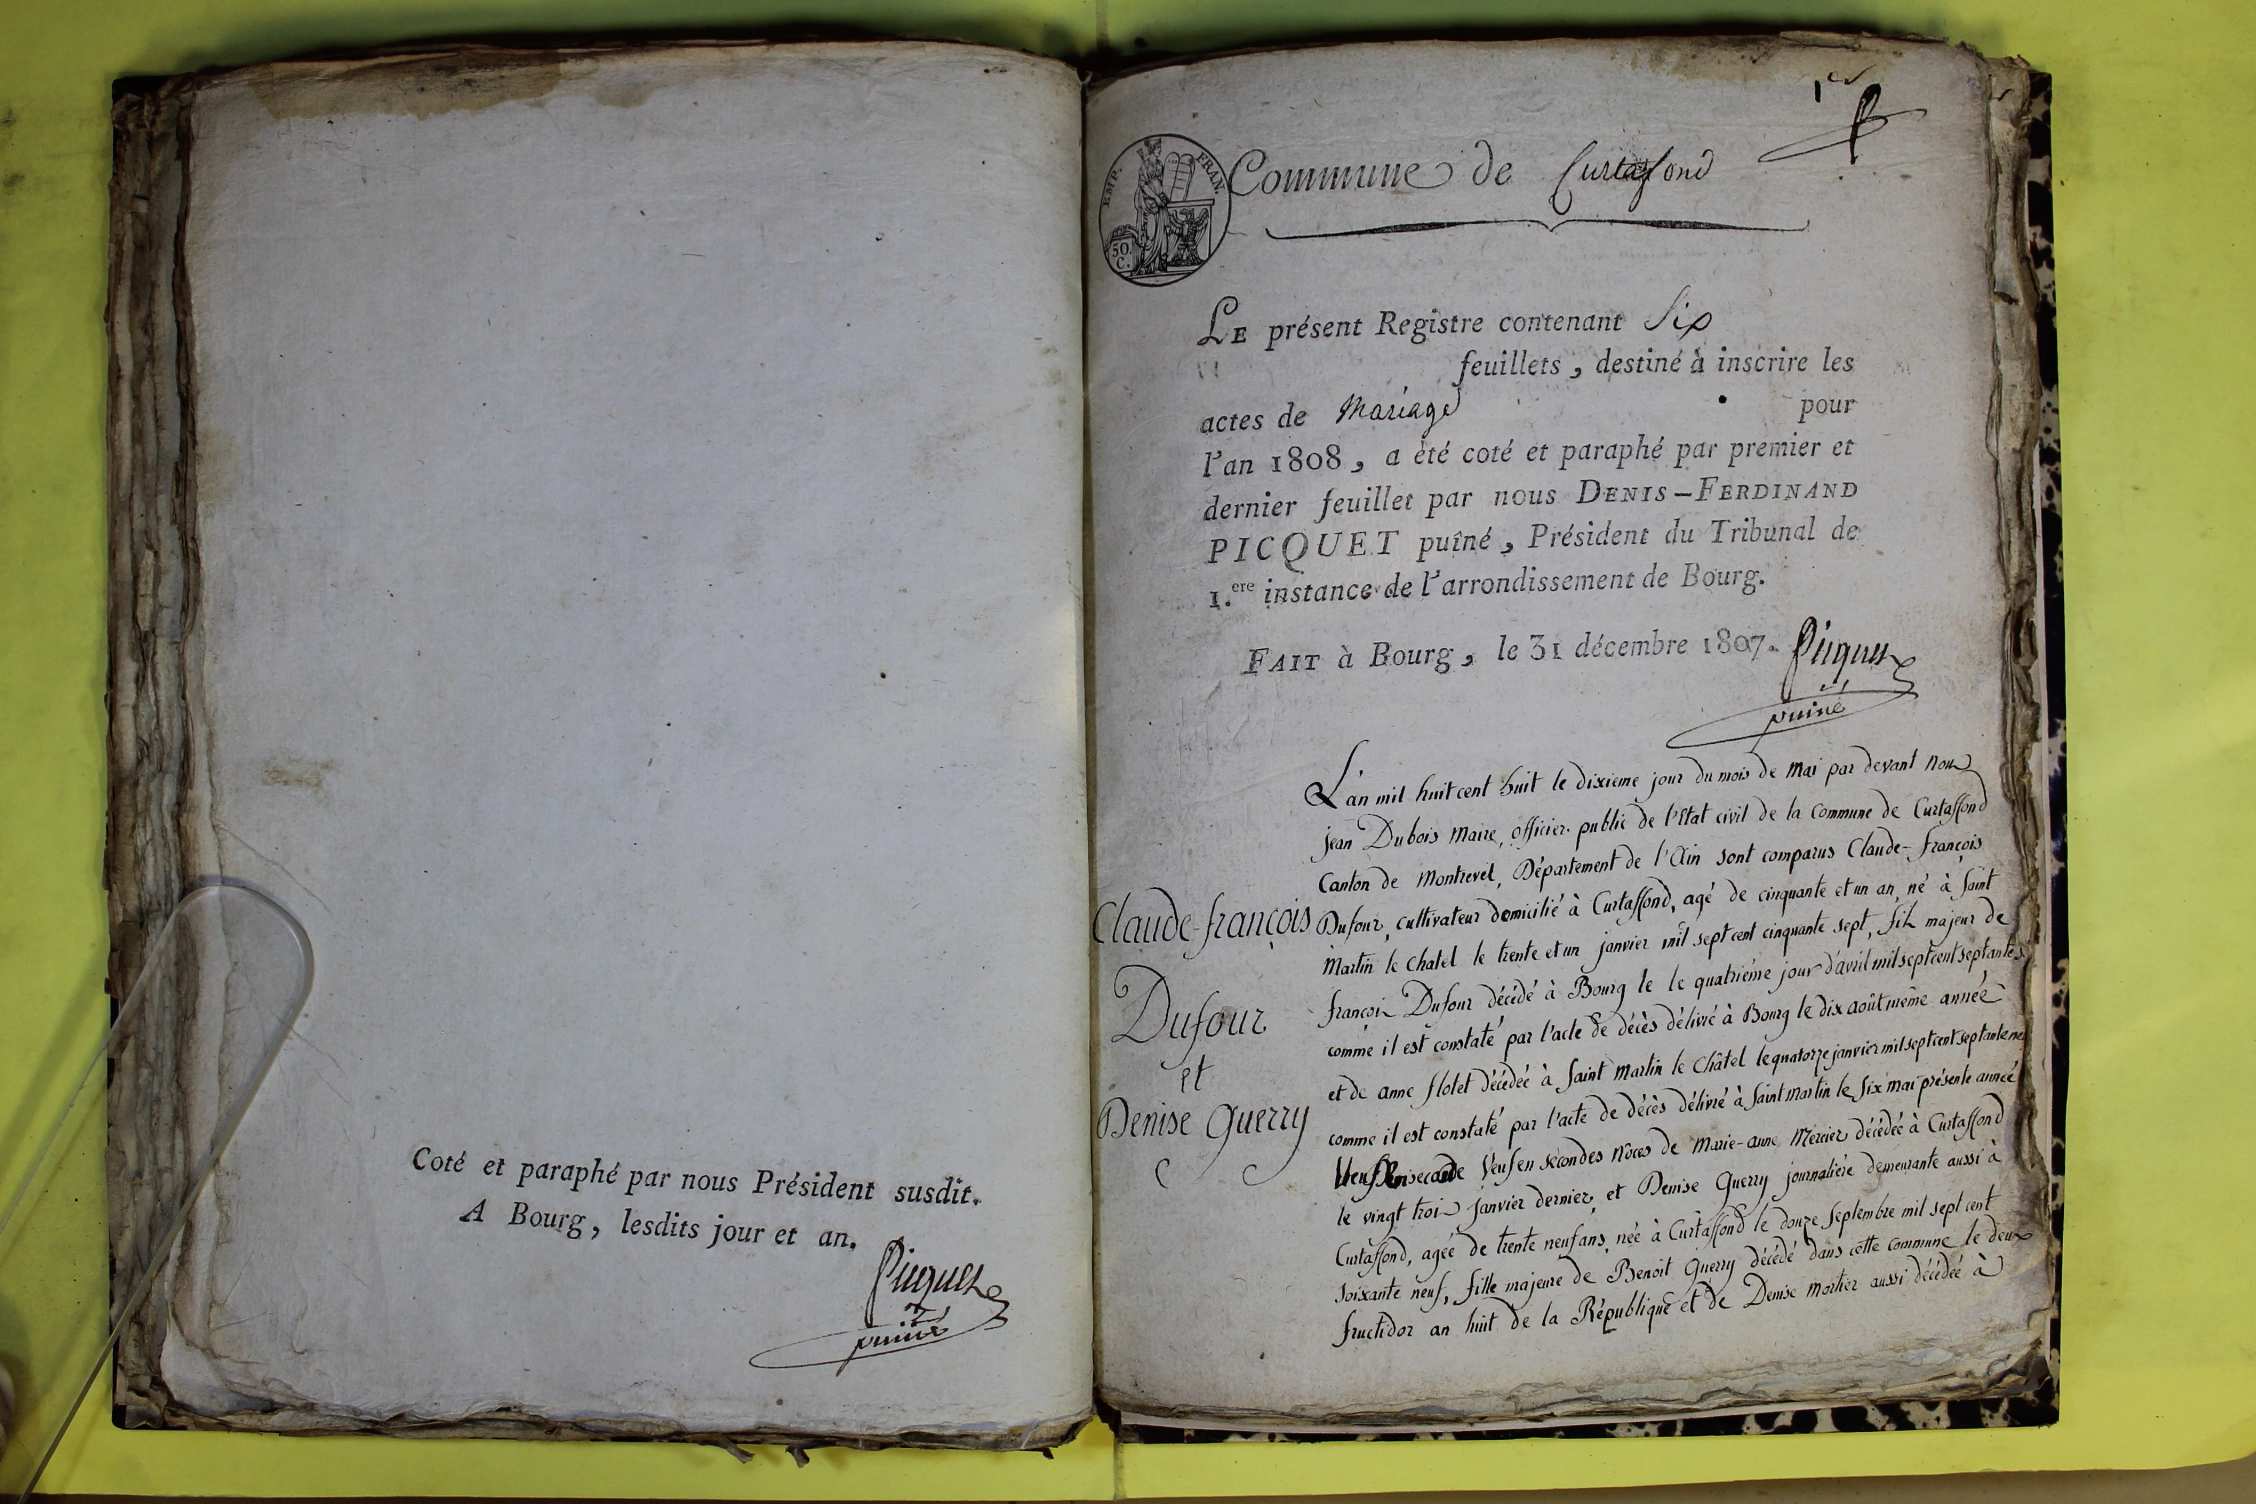 Coté et paraphé par nous Président susdit.
A Bourg, lesdits jour et an.
Picquet
puiné
1er
EMP. FRAN.
50 C.
Commune de Curtafond
LE présent Registre contenant Six
feuillets, destiné à inscrire les
actes de Mariage pour
l'an 1808, a été coté et paraphé par premier et
dernier feuillet par nous DENIS-FERDINAND
PICQUET puîné, Président du Tribunal de
1.ere instance de l'arrondissement de Bourg.
FAIT à Bourg, le 31 décembre 1807.
Picquet
puiné
L'an mil huit cent huit le dixieme jour du mois de mai par devant nous
jean Dubois Maire, officier public de l'Etat civil de la commune de Curtaffond
Canton de Montrevel, Département de l'Ain sont comparus Claude-françois
Dufour, cultivateur domicilié à Curtaffond, agé de cinquante et un an, né à Saint
Martin le chatel le trente et un janvier mil sept cent cinquante sept, fils majeur de
françois Dufour décédé à Bourg le le quatriéme jour d'avril mil sept cent septante
comme il est constaté par l'acte de décès délivré à Bourg le dix août même année
et de anne flotet décédée à Saint Martin le Châtel le quatorze janvier mil sept cent septante
comme il est constaté par l'acte de décès délivré à Saint Martin le Six mai présente année
Veuf en secondes nôces de Marie-anne Mercier décédée à Curtaffond
le vingt trois janvier dernier, et Denise Guerry journaliére demeurante aussi à
Curtaffond, agée de trente neuf ans, née à Curtaffond le douze septembre mil sept cent
soixante neuf, fille majeure de Benoit Guerry décédé dans cette commune le deux
fructidor an huit de la République et de Denise mortier aussi décédée à
Claude-françois
Dufour
et
Denise Guerry